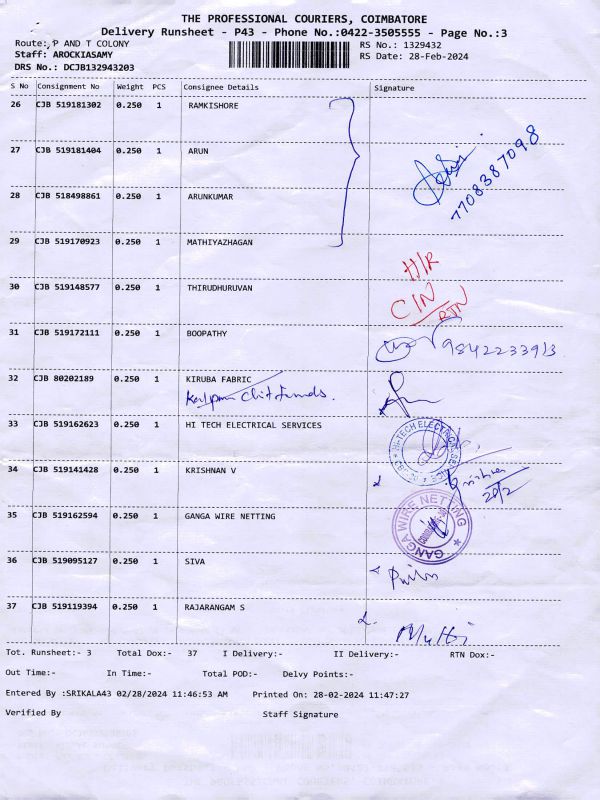 THE PROFESSIONAL COURIERS, COIMBATORE
Delivery Runsheet - P43 - Phone No.:0422-3505555 - Page No.:3
Route:,P AND T COLONY
RS No.: 1329432
Staff: AROCKIASAMY
RS Date: 28-Feb-2024
DRS No.: DCJB132943203
S No Consignment No Weight PCS Consignee Details Signature
26 CJB 519181302 0.250 1 RAMKISHORE
27 CJB 519181404 0.250 1 ARUN
7708387098
28 CJB 518498861 0.250 1 ARUNKUMAR
29 CJB 519170923 0.250 1 MATHIYAZHAGAN
H/R
30 CJB 519148577 0.250 1 THIRUDHURUVAN
C/N
RTN
31 CJB 519172111 0.250 1 BOOPATHY
9842233913
32 CJB 80202189 0.250 1 KIRUBA FABRIC
Chit Funds.
33 CJB 519162623 0.250 1 HI TECH ELECTRICAL SERVICES
HI-TECH ELECTRICAL
34 CJB 519141428 0.250 1 KRISHNAN V
Krishnan
28/2
35 CJB 519162594 0.250 1 GANGA WIRE NETTING
GANGA WIRE NETTING
36 CJB 519095127 0.250 1 SIVA
37 CJB 519119394 0.250 1 RAJARANGAM S
Tot. Runsheet:- 3 Total Dox:- 37 I Delivery:- II Delivery:- RTN Dox:-
Out Time:- In Time:- Total POD:- Delvy Points:-
Entered By :SRIKALA43 02/28/2024 11:46:53 AM Printed On: 28-02-2024 11:47:27
Verified By Staff Signature